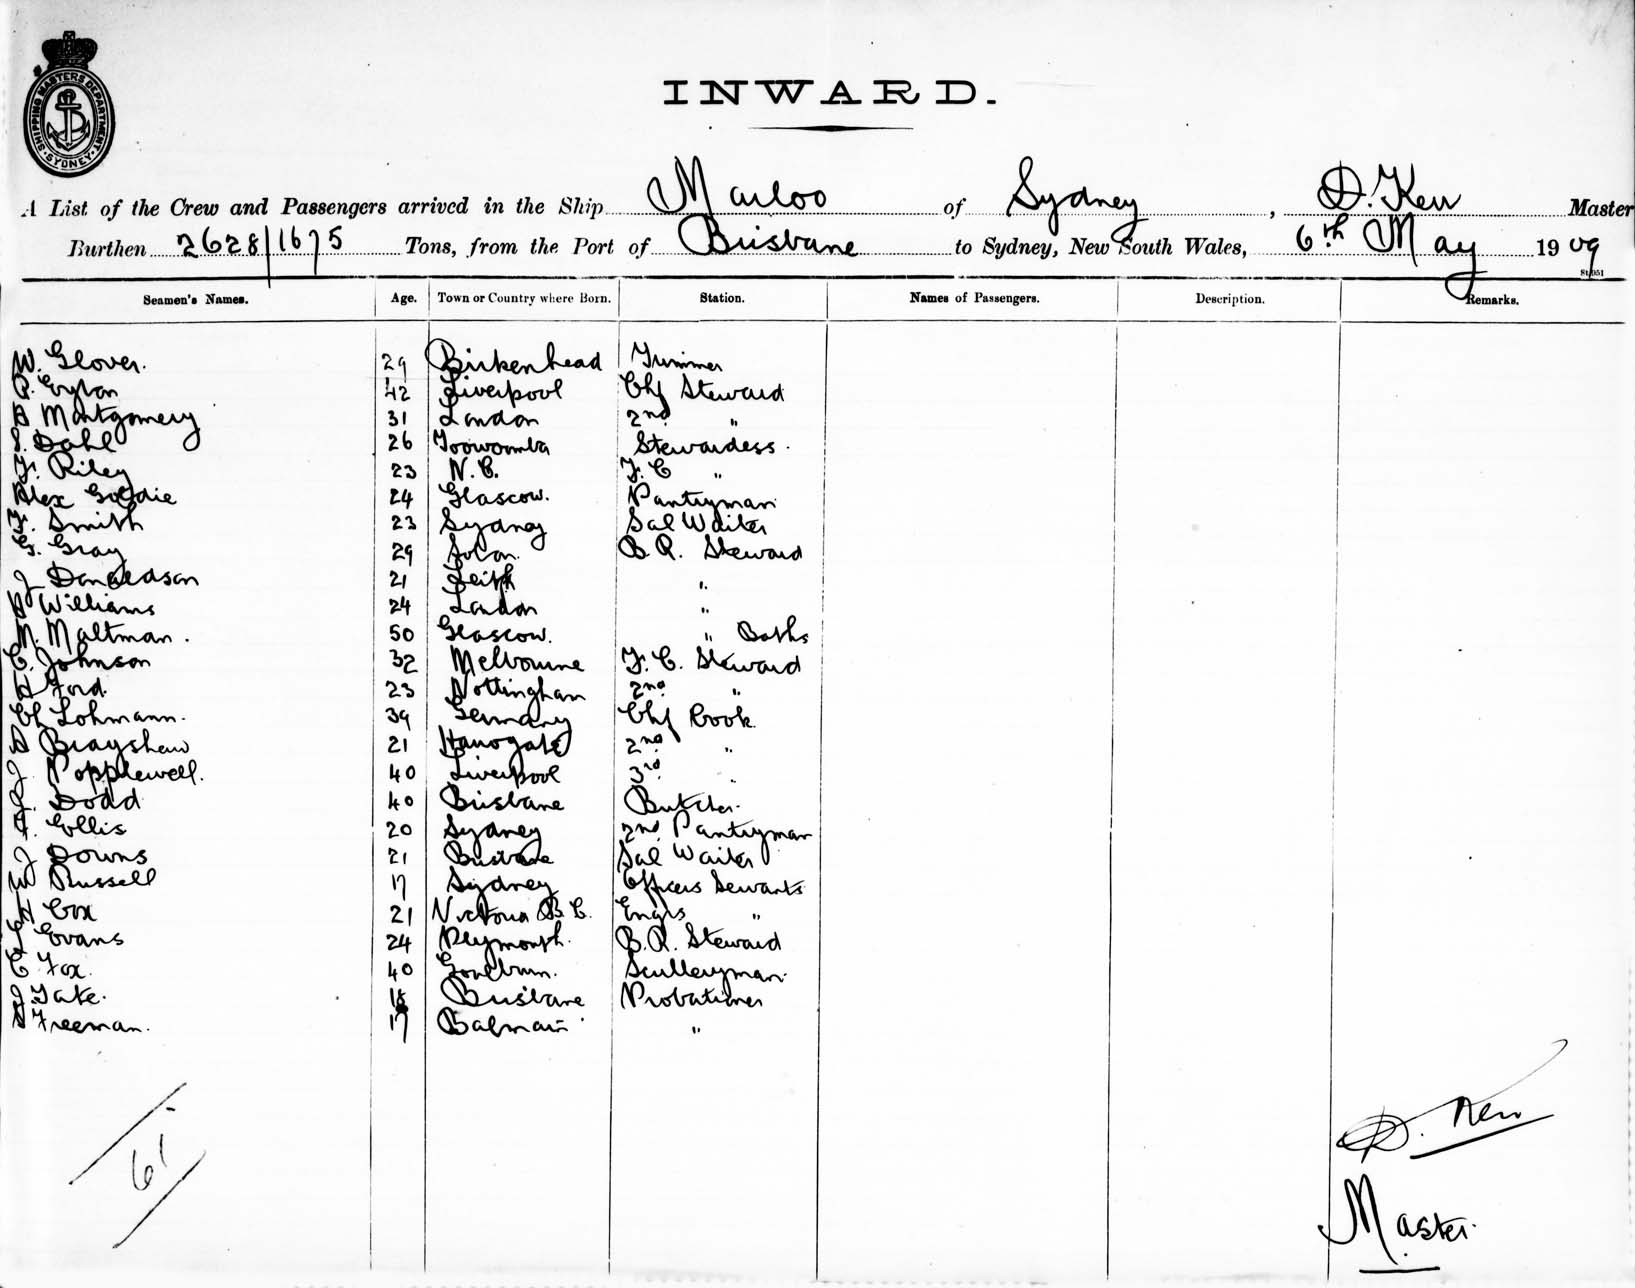 SHIPPING MASTERS DEPARTMENT SYDNEY
INWARD.
A List of the Crew and Passengers arrived in the Ship Marloo of Sydney, D. Kerr Master
Burthen 2628/1675 Tons, from the Port of Brisbane to Sydney, New South Wales, 6th May 1909
Seamen's Names. Age. Town or Country where Born. Station. Names of Passengers. Description. Remarks.
W. Glover. 29 Birkenhead Trimmer
42 Liverpool Chf Steward
Montgomery 31 London 2nd "
Dahl 26 Toowoomba Stewardess.
F. Riley 23 N.C. F.C "
Alex Goldie 24 Glascow. Pantryman
F. Smith 23 Sydney Sal Waiter
G. Gray 29 B.R. Steward
J Donaldson 21 Leith "
Williams 24 London "
M. Maltman. 50 Glascow. " Baths
C. Johnson 32 Melbourne F.C. Steward
H Ford. 23 Nottingham 2nd "
Ch Lohmann. 39 Germany Chf Cook.
Brayshaw 21 Harrogate 2nd "
J. Popplewell. 40 Liverpool 3rd "
J. Dodd 40 Brisbane Butcher.
Ellis 20 Sydney 2nd Pantryman
J Downs 21 Brisbane Sal Waiter
W Russell 17 Sydney Officers Servants
H Cox 21 Victoria B.C. Engrs "
Evans 24 Plymouth. B.R. Steward
C. Fox. 40 Goulburn. Sculleryman.
J Tate. 18 Brisbane Probationer
Freeman. 17 Balmain "
61
D. Kerr
Master.